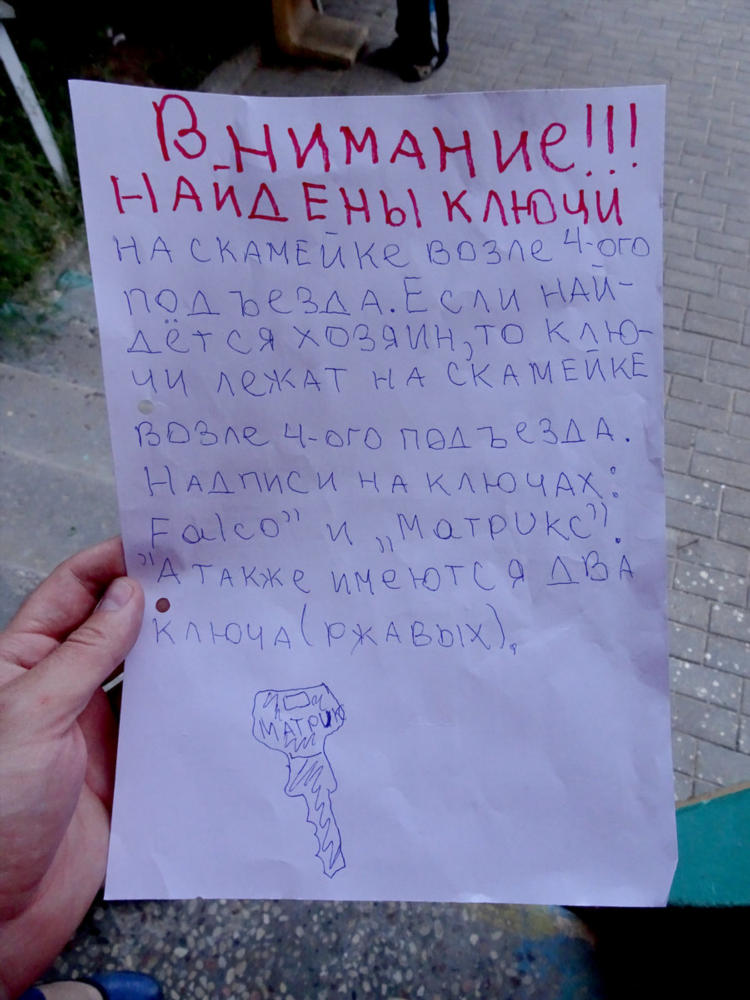 Внимание!!!
НАЙДЕНЫ КЛЮЧИ
НА СКАМЕЙКЕ ВОЗЛЕ 4-ОГО
ПОДЪЕЗДА. ЕСЛИ НАЙ-
ДЁТСЯ ХОЗЯИН, ТО КЛЮ-
ЧИ ЛЕЖАТ НА СКАМЕЙКЕ
ВОЗЛЕ 4-ОГО ПОДЪЕЗДА.
НАДПИСИ НА КЛЮЧАХ:
„Falco” и „Матрикс”.
А ТАКЖЕ ИМЕЮТСЯ ДВА
КЛЮЧА (РЖАВЫХ).
МАТРИК